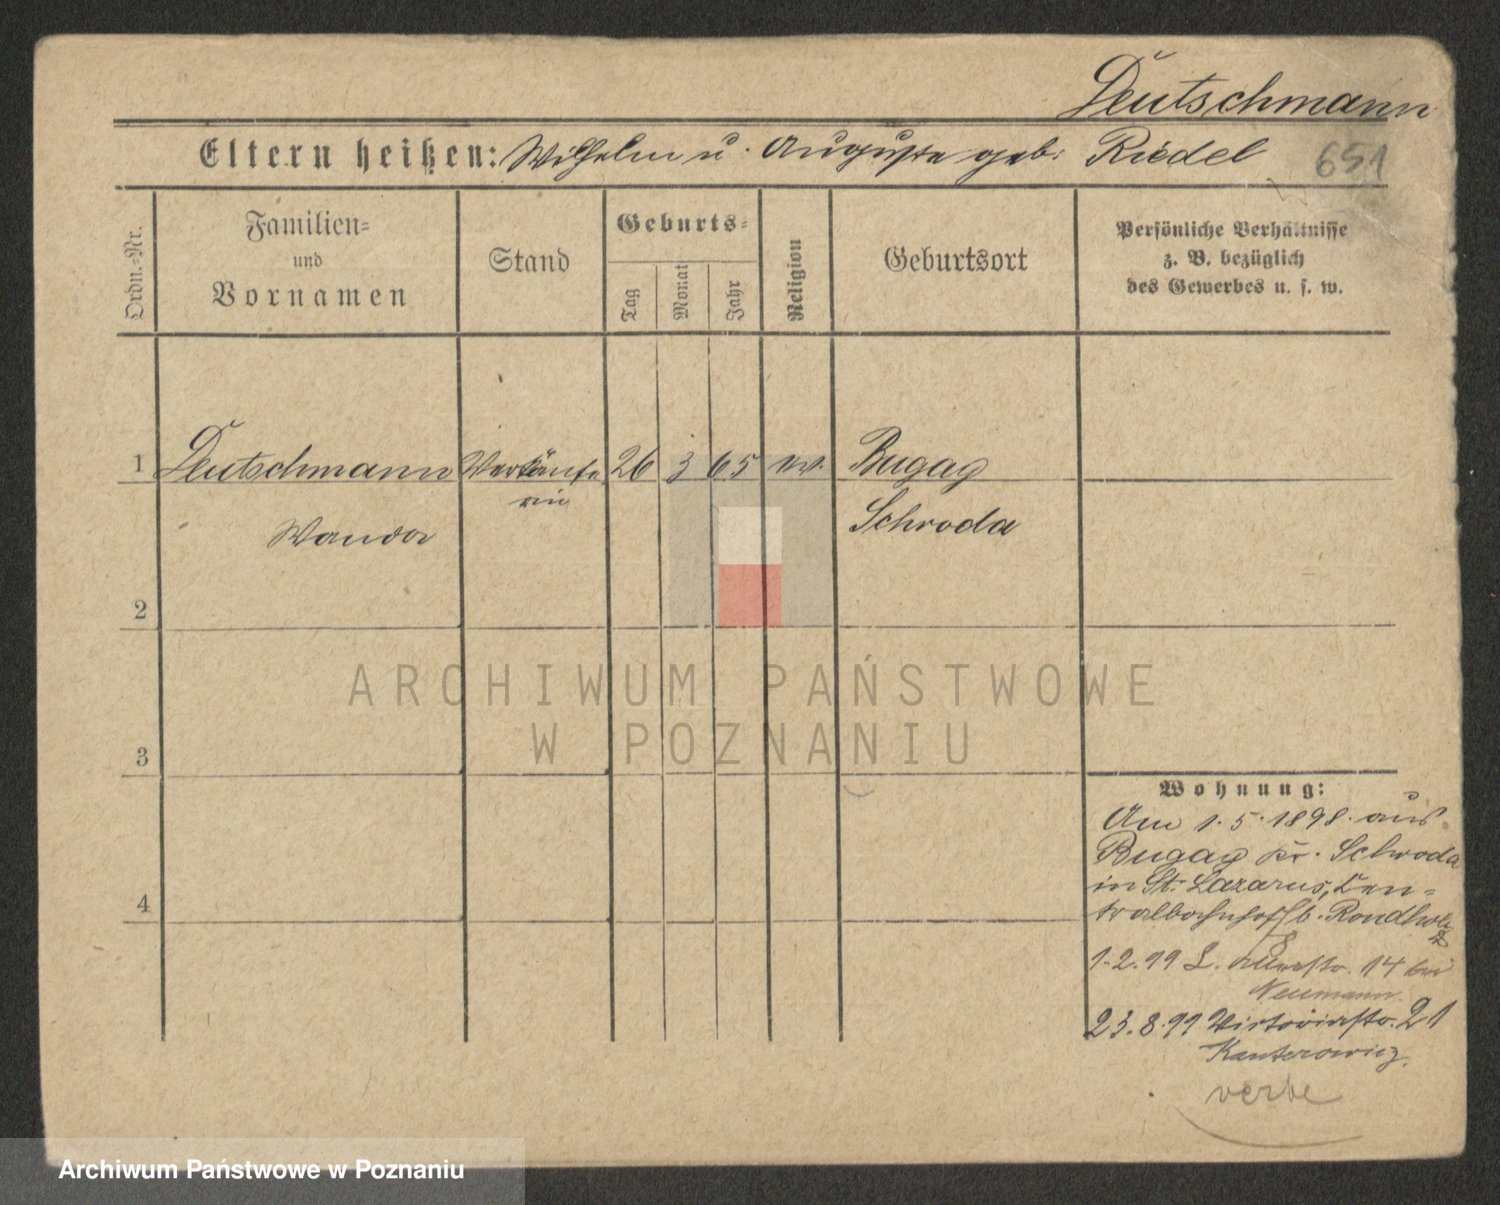 Deutschmann
Eltern heißen: Wilhelm u. Auguste geb. Riedel 651
Ordn.-Nr.
Familien-
und
Vornamen
Stand
Geburts-
Tag
Monat
Jahr
Religion
Geburtsort
Persönliche Verhältnisse
z. B. bezüglich
des Gewerbes u. s. w.
1 Deutschmann Verkäufe 26 3 65 ev. Bugag
rin
Wanda
Schroda
2
3
4
ARCHIWUM PAŃSTWOWE
W POZNANIU
Wohnung:
Am 1.5.1898. aus
Bugag Kr. Schroda
in St. Lazarus, Cen-
tralbahnhof b. Rondholz
1.2.99 L. 14 bei
Neumann
23.8.99 Victoriastr. 21
Kanterowicz.
Archiwum Państwowe w Poznaniu